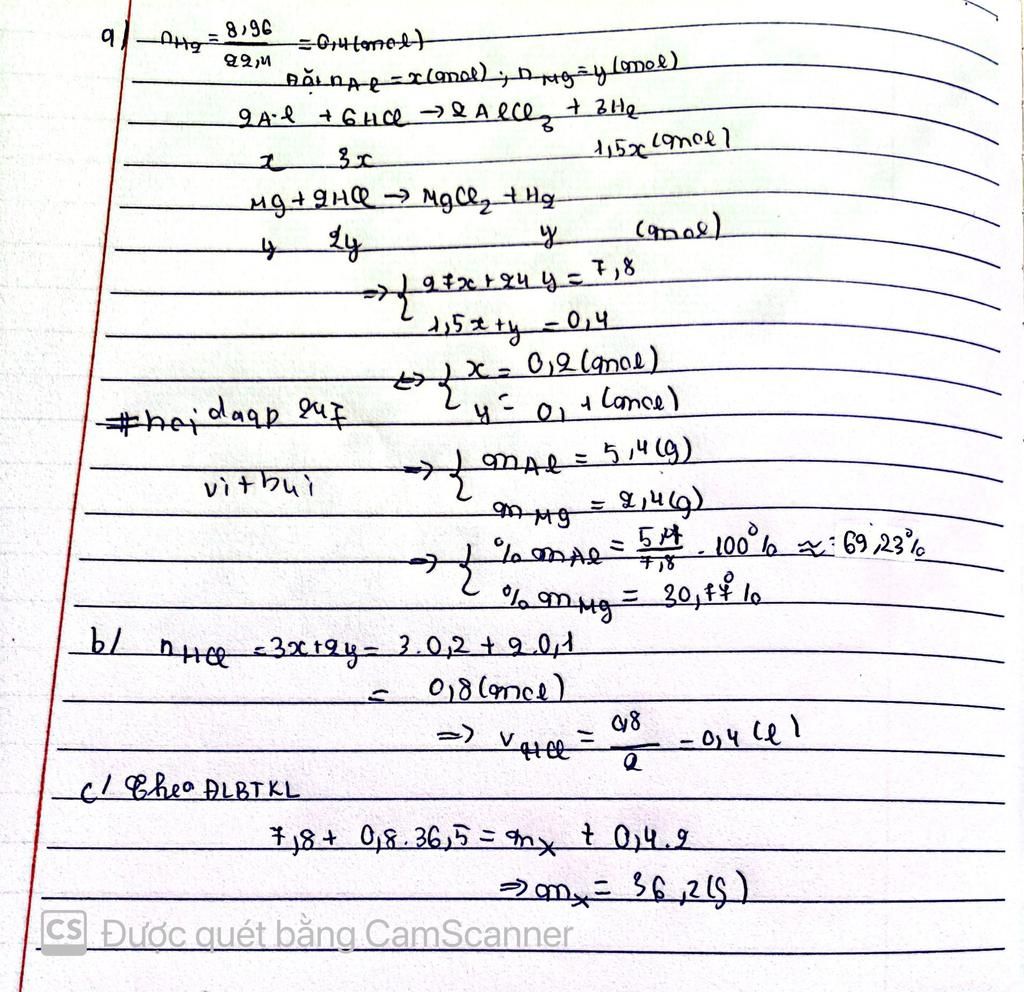 a) nH2 = 8,96/22,4 = 0,4 (mol)
Đặt nAl = x (mol) ; nMg = y (mol)
2Al + 6HCl → 2AlCl3 + 3H2
x 3x 1,5x (mol)
Mg + 2HCl → MgCl2 + H2
y 2y y (mol)
=> { 27x + 24y = 7,8
1,5x + y = 0,4
<=> { x = 0,2 (mol)
y = 0,1 (mol)
#hoidap247
vi+bui
=> { mAl = 5,4 (g)
mMg = 2,4 (g)
=> { % mAl = 5,4/7,8 . 100% ≈ 69,23%
% mMg = 30,77%
b/ nHCl = 3x + 2y = 3.0,2 + 2.0,1
= 0,8 (mol)
=> VHCl = 0,8/2 = 0,4 (l)
c/ Theo ĐLBTKL
7,8 + 0,8.36,5 = mx + 0,4.2
=> mx = 36,2 (g)
CS Được quét bằng CamScanner